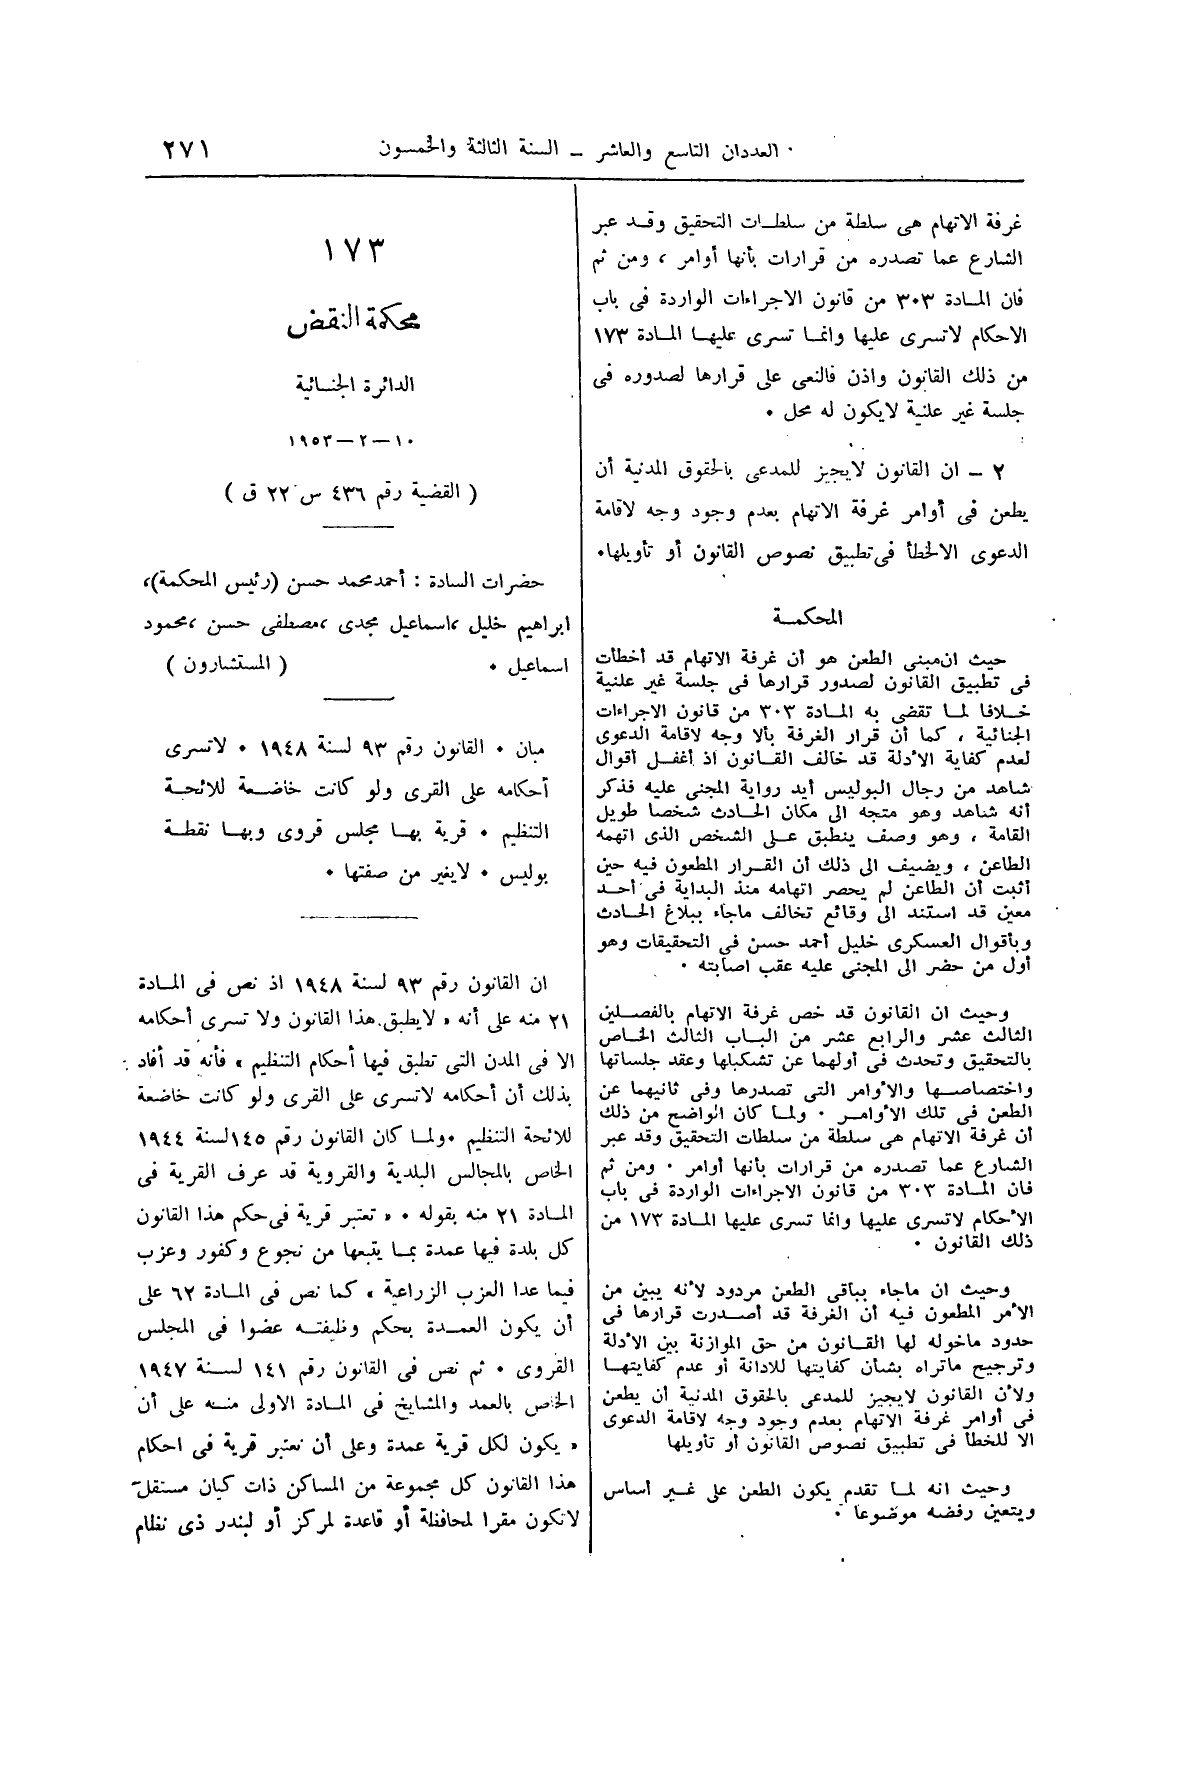 العددان التاسع والعاشر – السنة الثالثة والخمسون ٢٧١
غرفة الاتهام هى سلطة من سلطات التحقيق وقد عبر
الشارع عما تصدره من قرارات بأنها أوامر ، ومن ثم
فان المادة ٣٠٣ من قانون الاجراءات الواردة فى باب
الاحكام لاتسرى عليها وانما تسرى عليها المادة ١٧٣
من ذلك القانون واذن فالنعى على قرارها لصدوره فى
جلسة غير علنية لايكون له محل .
٢ – ان القانون لايجيز للمدعى بالحقوق المدنية أن
يطعن فى أوامر غرفة الاتهام بعدم وجود وجه لاقامة
الدعوى الالخطأ فى تطبيق نصوص القانون أو تأويلها.
المحكمة
حيث ان مبنى الطعن هو أن غرفة الاتهام قد أخطأت
فى تطبيق القانون لصدور قرارها فى جلسة غير علنية
خلافا لما تقضى به المادة ٣٠٣ من قانون الاجراءات
الجنائية ، كما أن قرار الغرفة بألا وجه لاقامة الدعوى
لعدم كفاية الأدلة قد خالف القانون اذ أغفل أقوال
شاهد من رجال البوليس أيد رواية المجنى عليه فذكر
أنه شاهد وهو متجه الى مكان الحادث شخصا طويل
القامة ، وهو وصف ينطبق على الشخص الذى اتهمه
الطاعن ، ويضيف الى ذلك أن القرار المطعون فيه حين
أثبت أن الطاعن لم يحصر اتهامه منذ البداية فى أحد
معين قد استند الى وقائع تخالف ماجاء ببلاغ الحادث
وبأقوال العسكرى خليل أحمد حسن فى التحقيقات وهو
أول من حضر الى المجنى عليه عقب اصابته .
وحيث ان القانون قد خص غرفة الاتهام بالفصلين
الثالث عشر والرابع عشر من الباب الثالث الخاص
بالتحقيق وتحدث فى أولهما عن تشكيلها وعقد جلساتها
واختصاصها والأوامر التى تصدرها وفى ثانيهما عن
الطعن فى تلك الأوامر . ولما كان الواضح من ذلك
أن غرفة الاتهام هى سلطة من سلطات التحقيق وقد عبر
الشارع عما تصدره من قرارات بأنها أوامر . ومن ثم
فان المادة ٣٠٣ من قانون الاجراءات الواردة فى باب
الأحكام لاتسرى عليها وانما تسرى عليها المادة ١٧٣ من
ذلك القانون .
وحيث ان ماجاء بباقى الطعن مردود لأنه يبين من
الأمر المطعون فيه أن الغرفة قد أصدرت قرارها فى
حدود ماخوله لها القانون من حق الموازنة بين الأدلة
وترجيح ماتراه بشأن كفايتها للادانة أو عدم كفايتها
ولأن القانون لايجيز للمدعى بالحقوق المدنية أن يطعن
فى أوامر غرفة الاتهام بعدم وجود وجه لاقامة الدعوى
الا للخطأ فى تطبيق نصوص القانون أو تأويلها
وحيث انه لما تقدم يكون الطعن على غير أساس
ويتعين رفضه موضوعا .
١٧٣
محكمة النقض
الدائرة الجنائية
١٠ – ٢ – ١٩٥٣
( القضية رقم ٤٣٦ س ٢٢ ق )
حضرات السادة : أحمد محمد حسن (رئيس المحكمة)،
ابراهيم خليل ،اسماعيل مجدى ،مصطفى حسن ،محمود
اسماعيل . ( المستشارون )
مبان . القانون رقم ٩٣ لسنة ١٩٤٨ . لاتسرى
أحكامه على القرى ولو كانت خاضعة للائحة
التنظيم . قرية بها مجلس قروى وبها نقطة
بوليس . لايغير من صفتها .
ان القانون رقم ٩٣ لسنة ١٩٤٨ اذ نص فى المادة
٢١ منه على أنه « لايطبق هذا القانون ولا تسرى أحكامه
الا فى المدن التى تطبق فيها أحكام التنظيم » فأنه قد أفاد
بذلك أن أحكامه لاتسرى على القرى ولو كانت خاضعة
للائحة التنظيم .ولما كان القانون رقم ١٤٥لسنة ١٩٤٤
الخاص بالمجالس البلدية والقروية قد عرف القرية فى
المادة ٢١ منه بقوله . « تعتبر قرية فى حكم هذا القانون
كل بلدة فيها عمدة بما يتبعها من نجوع وكفور وعزب
فيما عدا العزب الزراعية » كما نص فى المادة ٦٢ على
أن يكون العمدة بحكم وظيفته عضوا فى المجلس
القروى . ثم نص فى القانون رقم ١٤١ لسنة ١٩٤٧
الخاص بالعمد والمشايخ فى المادة الاولى منه على أن
« يكون لكل قرية عمدة وعلى أن تعتبر قرية فى احكام
هذا القانون كل مجموعة من المساكن ذات كيان مستقل
لاتكون مقرا لمحافظة أو قاعدة لمركز أو لبندر ذى نظام